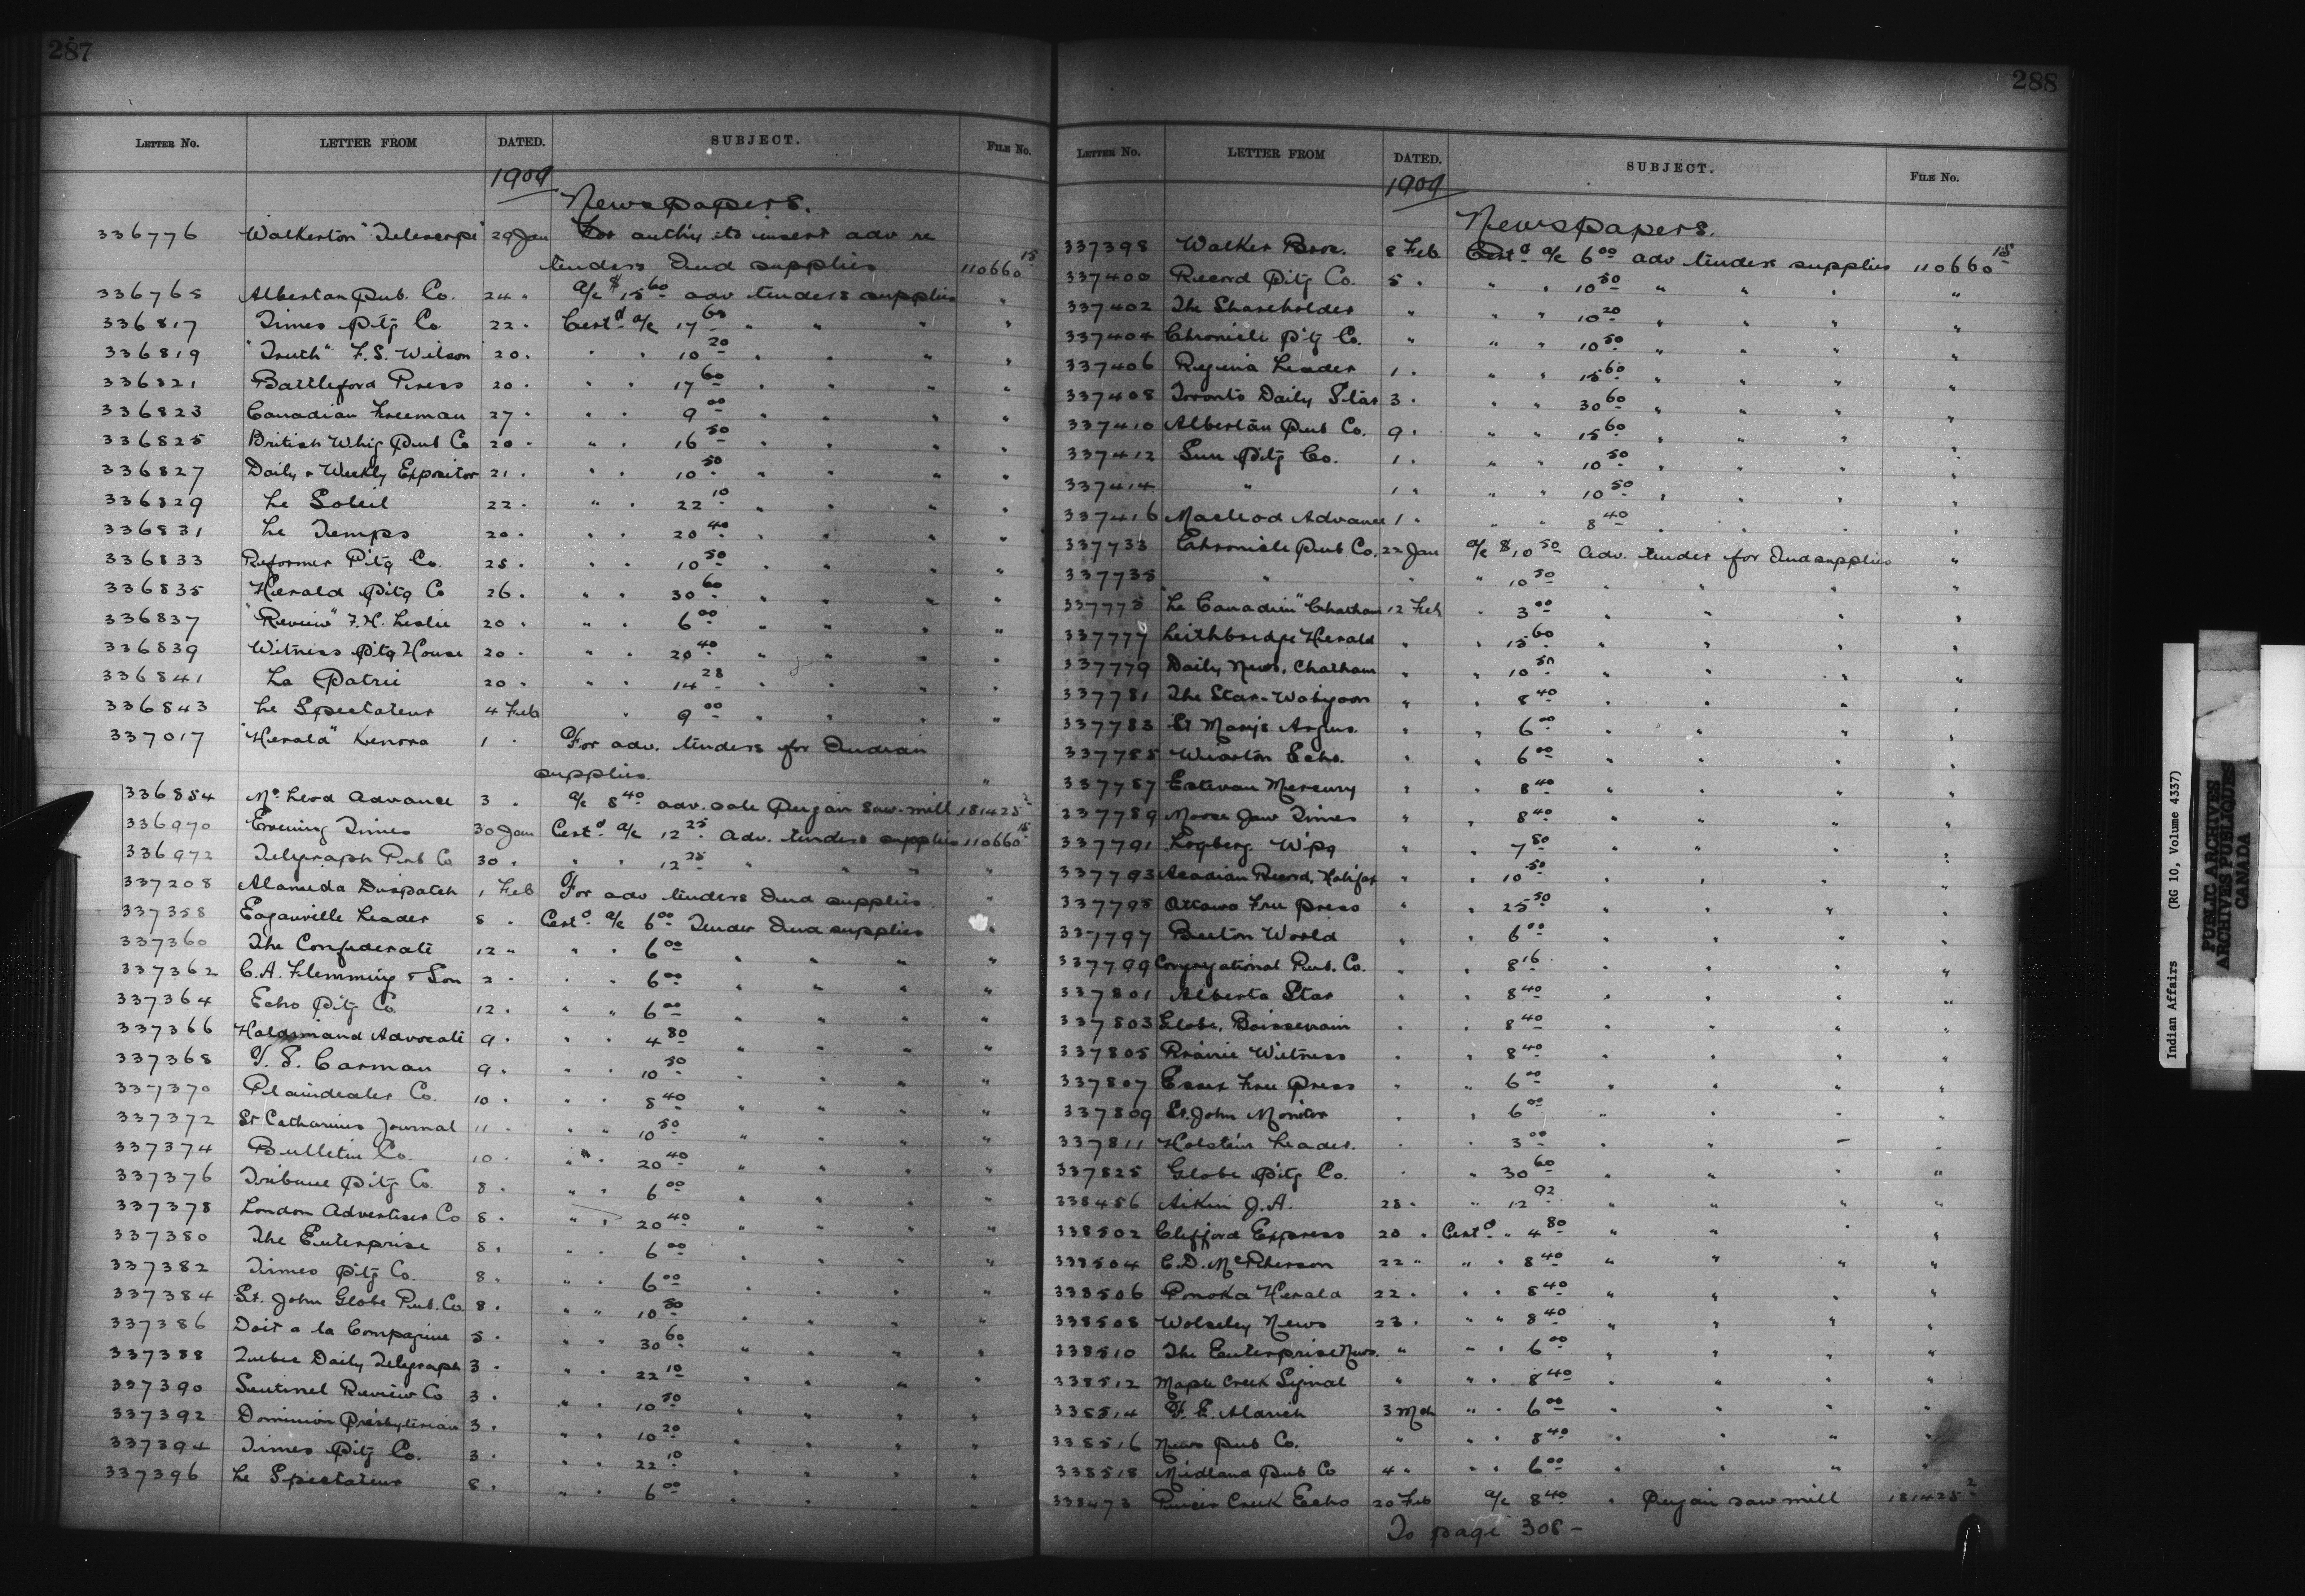 287
LETTER NO. LETTER FROM DATED. SUBJECT. FILE No.
1909
Newspapers.
336776 Walkerton "Telescope" 29 Jan For auth'y to insert adv re
tenders Ind supplies. 110660 15
336765 Albertan Pub. Co. 24 " a/c $15 60 adv tenders supplies "
336817 Times Ptg Co 22 " Cert d a/c 17 60 " " " "
336819 "Truth" F.S. Wilson 20 " " " 10 20 " " " "
336821 Battleford Press 20 " " " 17 60 " " " "
336823 Canadian Freeman 27 " " " 9 00 " " " "
336825 British Whig Pub Co 20 " " " 16 50 " " " "
336827 Daily & Weekly Expositor 21 " " " 10 50 " " " "
336829 Le Soleil 22 " " " 22 10 " " " "
336831 Le Temps 20 " " " 20 40 " " " "
336833 Reformer Ptg Co. 25 " " " 10 50 " " " "
336835 Herald Ptg Co 26 " " " 30 60 " " " "
336837 "Review" F.H. Leslie 20 " " " 6 00 " " " "
336839 Witness Ptg House 20 " " " 20 40 " " " "
336841 La Patrie 20 " " " 14 28 " " " "
336843 Le Spectateur 4 Feb " 9 00 " " " "
337017 "Herald" Kenora 1 " For adv. tenders for Indian
supplies. "
336854 McLeod Advance 3 " a/c 8 40 adv. sale Peigan Saw-mill 181425 2
336970 Evening Times 30 Jan Cert d a/c 12 25 Adv. tenders supplies 110660 15
336972 Telegraph Pub Co 30 " " " 12 25 " " " "
337208 Alameda Dispatch 1 Feb For adv tenders Ind supplies "
337358 Eganville Leader 8 " Cert d a/c 6 00 Tender Ind supplies "
337360 The Confederate 12 " " " 6 00 " " " "
337362 C.A. Flemming & Son 2 " " " 6 00 " " " "
337364 Echo Ptg Co 12 " " " 6 00 " " " "
337366 Haldimand Advocate 9 " " " 4 80 " " " "
337368 T. S. Carman 9 " " " 10 50 " " " "
337370 Plaindealer Co. 10 " " " 8 40 " " " "
337372 St Catharines Journal 11 " " " 10 50 " " " "
337374 Bulletin Co. 10 " " " 20 40 " " " "
337376 Tribune Ptg Co. 8 " " " 6 00 " " " "
337378 London Advertiser Co 8 " " " 20 40 " " " "
337380 The Enterprise 8 " " " 6 00 " " " "
337382 Times Ptg Co. 8 " " " 6 00 " " " "
337384 St. John Globe Pub. Co 8 " " " 10 50 " " " "
337386 Doit a la Compagnie 5 " " " 30 60 " " " "
337388 Quebec Daily Telegraph 3 " " " 22 10 " " " "
337390 Sentinel Review Co 3 " " " 10 50 " " " "
337392 Dominion Presbyterian 3 " " " 10 20 " " " "
337394 Times Ptg Co. 3 " " " 22 10 " " " "
337396 Le Spectateur 8 " " " 6 00 " " " "
288
LETTER NO. LETTER FROM DATED. SUBJECT. FILE No.
1909
Newspapers.
337398 Walker Bros. 8 Feb Cert d a/c 6 00 adv tenders supplies 110660 15
337400 Record Ptg Co. 5 " " " 10 50 " " " "
337402 The Shareholder " " " 10 20 " " " "
337404 Chronicle Ptg Co. " " " 10 50 " " " "
337406 Regina Leader 1 " " " 15 60 " " " "
337408 Toronto Daily Star 3 " " " 30 60 " " " "
337410 Albertan Pub Co. 9 " " " 15 60 " " " "
337412 Sun Ptg Co. 1 " " " 10 50 " " " "
337414 " 1 " " " 10 50 " " " "
337416 Macleod Advance 1 " " " 8 40 " " " "
337733 Chronicle Pub Co. 22 Jan a/c $10 50 Adv. tender for Ind supplies "
337735 " " " 10 50 " " " "
337775 "Le Canadien" Chatham 12 Feb " 3 00 " " " "
337777 Leithbridge Herald " " 15 60 " " " "
337779 Daily News, Chatham " " 10 50 " " " "
337781 The Star-Wabigoon " " 8 40 " " " "
337783 St Marys Argus. " " 6 00 " " " "
337785 Wiarton Echo. " " 6 00 " " " "
337787 Estevan Mercury " " 8 40 " " " "
337789 Moose Jaw Times " " 8 40 " " " "
337791 Logberg Wpg " " 7 80 " " " "
337793 Acadian Record, Halifax " " 10 50 " " " "
337795 Ottawa Free Press " " 25 50 " " " "
337797 Beeton World " " 6 00 " " " "
337799 Congregational Pub. Co. " " 8 16 " " " "
337801 Alberta Star " " 8 40 " " " "
337803 Globe, Boissevain " " 8 40 " " " "
337805 Prairie Witness " " 8 40 " " " "
337807 Essex Free Press " " 6 00 " " " "
337809 St. John Monitor " " 6 00 " " " "
337811 Holstein Leader. " " 3 00 " " " "
337825 Globe Ptg Co. " " 30 60 " " " "
338456 Aikin J.A. 25 " " 12 92 " " " "
338502 Clifford Express 20 " Cert d " 4 80 " " " "
338504 C.D. McPherson 22 " " " 8 40 " " " "
338506 Ponoka Herald 22 " " " 8 40 " " " "
338508 Wolseley News 23 " " " 8 40 " " " "
338510 The Enterprise News. " " " 6 00 " " " "
338512 Maple Creek Signal " " " 8 40 " " " "
338514 T. E. Alarich 3 Mch " " 6 00 " " " "
338516 News Pub Co. " " " 8 40 " " " "
338518 Midland Pub Co 4 " " " 6 00 " " " "
338473 Pincer Creek Echo 20 Feb a/c 8 40 " Peigan saw mill 181425 2
To page 308 -
Indian Affairs (RG 10, Volume 4337)
PUBLIC ARCHIVES
ARCHIVES PUBLIQUES
CANADA